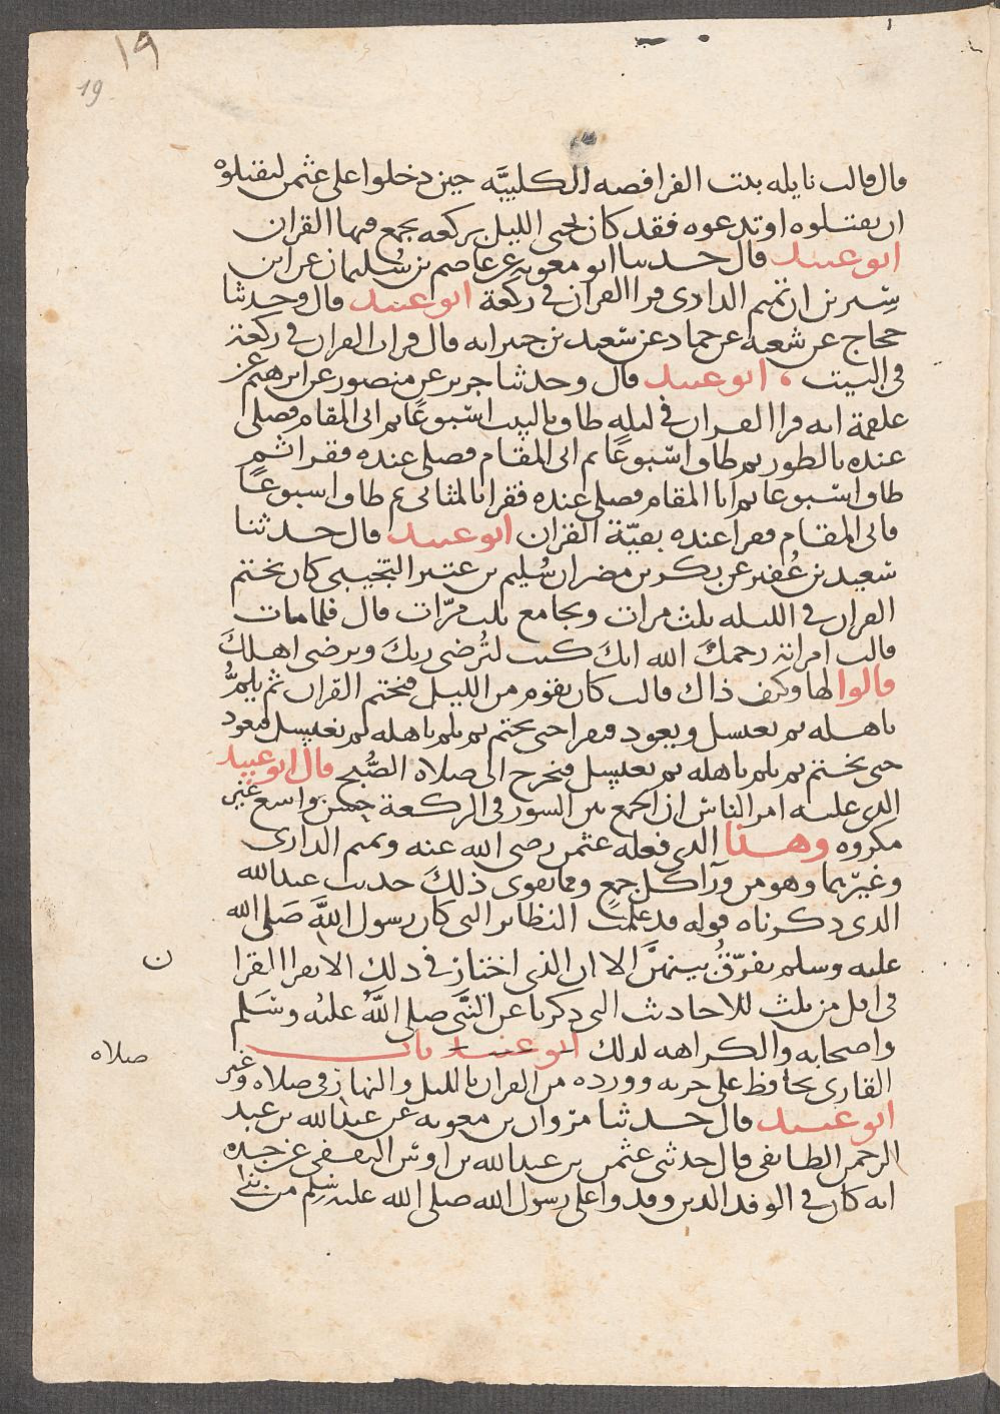 ١٩
19
قال قالت نايله بنت الفرافصه الكلبيَّه حين دخلوا على عثمن ليقتلوه
ان يقتلوه او تدعوه فقد كان يحيى الليل بركعه يجمع فيها القران
ابو عبيد قال حدثنا ابو معويه عن عاصم بن سُليمان عن ابن
سِيرين ان تميم الدارى قرا القران في ركعة ابو عبيد قال وحدثنا
حجاج عن شعبه عن حماد عن سَعيد بن جبير انه قال قرات القران في ركعة
في البيت ، ابو عبيد قال وحدثنا جرير عن منصور عن ابرهيم عن
علقمة انه قرا القران في ليله طاف بالبيت اسبوعًا ثم اتى المقام فصلى
عنده بالطور ثم طاف اسبوعًا ثم اتى المقام فصلى عنده فقرا ثم
طاف اسبوعا ثم اتا المقام فصلى عنده فقرا بالمثانى ثم طاف اسبوعًا
فاتى المقام فقرا عنده بقيّة القران ابو عبيد قال حدثنا
سَعيد بن عُفير عن بكر بن مضر ان سُليم بن عتير التجيبى كان يختم
القران في الليله ثلث مرات ويجامع ثلث مرّات قال فلما مات
قالت امراته رحمك الله انك كنت لتُرضى ربك وترضى اهلكَ
قالوا لها وكيف ذاك قالت كان يقوم من الليل فيختم القران ثم يلمُّ
باهله ثم يغتسل ويعود فيقرا حتى يختم ثم يلم باهله ثم يغتسل فيعود
حتى يختم ثم يلم باهله ثم يغتسل فيخرج الى صلاه الصُّبح قال ابو عبيد
الذى عليه امر الناس ان الجمع بين السور في الركعة حسن واسع غير
مكروه وهذا الذى فعله عثمن رضى الله عنه وتميم الدارى
وغيرُهما وهو من ورآ كل جمع ومما يقوى ذلكَ حديث عبد الله
الذى ذكرناه قوله قد علمت النظاير التى كان رسول اللَّه صَلى الله
عليه وسلم يفرّقُ بينهنَّ الا ان الذى اختار في ذلك الا يقرا القران
في اقل من ثلث للاحاديث التى ذكرنا عن النَّبى صلى اللهُ عليه وسَلم
واصحابه والكراهه لذلك ابو عبيد باب
القارى يحافظ على حزبه وورده من القران بالليل والنهار في صلاه وغير
صلاه
ابو عبيد قال حدثنا مرْوان بن معويه عن عبد الله بن عبد
الرحمن الطايفى قال حدثنى عثمن بن عبد الله بن اوس الثقفى عن جده
انه كان في الوفد الذين وفدوا على رسول الله صلى الله عليه وسَلم من بنى